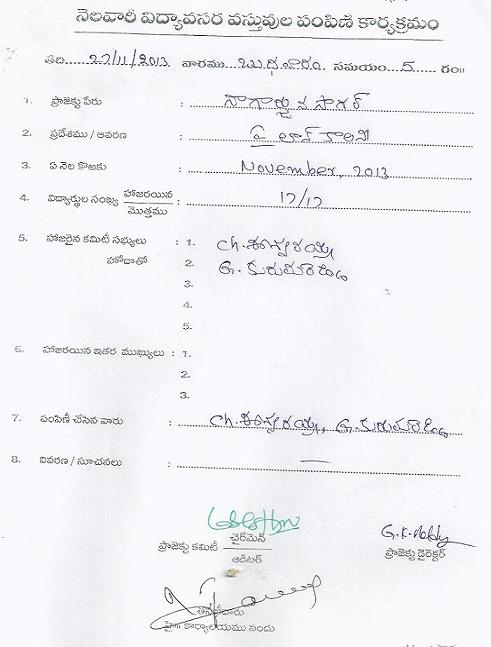 నెలవారీ విద్యావసర వస్తువుల పంపిణీ కార్యక్రమం
తేది....27/11/2013. వారము...బుధవారం. సమయం...5...... గం॥
1. ప్రాజెక్టు పేరు : నాగార్జున సాగర్
2. ప్రదేశము / ఆవరణ : పై లాన్ కాలనీ
3. ఏ నెల కొఱకు : November, 2013
4. విద్యార్థుల సంఖ్య హాజరయిన / మొత్తము : 17/17
5. హాజరైన కమిటీ సభ్యులు : 1. Ch. ఈశ్వరయ్య
హోదాతో 2. G. కురుమారెడ్డి
3.
4.
5.
6. హాజరయిన ఇతర ముఖ్యులు : 1.
2.
3.
7. పంపిణీ చేసిన వారు : Ch. ఈశ్వరయ్య, G. కురుమారెడ్డి
8. వివరణ / సూచనలు : —
ప్రాజెక్టు కమిటీ చైర్‌మెన్ / ఆడిటర్
G.K. Reddy
ప్రాజెక్టు డైరెక్టర్
కార్యాలయము నందు